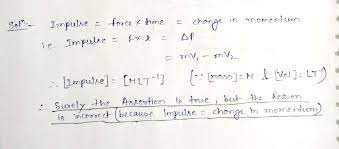 Solⁿ:- Impulse = force × time = change in momentum
i.e. Impulse = F × t = ΔP
= mV₁ - mV₂
∴ [Impulse] = [MLT⁻¹] (∵ [mass] = M & [Vel] = LT⁻¹)
∴ Surely the Assertion is true, but the Reason
is incorrect (because impulse = change in momentum)